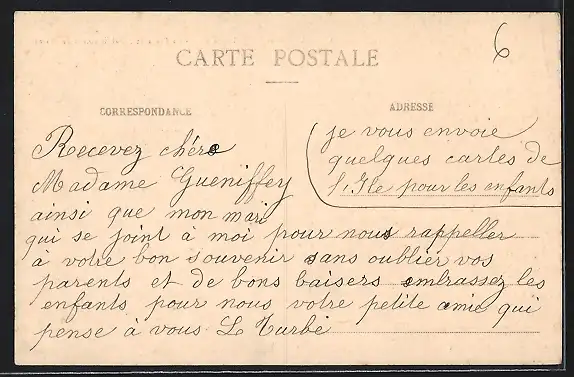 6
CARTE POSTALE
CORRESPONDANCE
ADRESSE
Recevez chére
Madame Gueniffey
ainsi que mon mari
qui se joint à moi pour nous rappeller
à votre bon souvenir sans oublier vos
parents et de bons baisers embrassez les
enfants pour nous votre petite amie qui
pense à vous L Turbé
je vous envoie
quelques cartes de
l'Ile pour les enfants